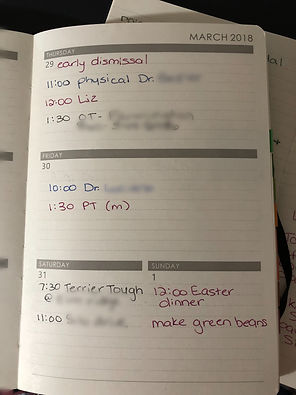 MARCH 2018
THURSDAY
29 early dismissal
11:00 physical Dr.
12:00 Liz
1:30 OT-
FRIDAY
30
10:00 Dr.
1:30 PT (m)
SATURDAY
31
7:30 Terrier Tough
@
11:00
SUNDAY
1
12:00 Easter
dinner
make green beans